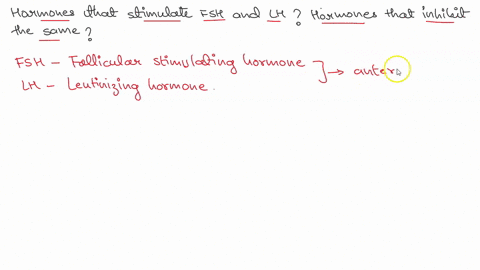 Hormones that stimulate FSH and LH? Hormones that inhibit
the same?
FSH – Follicular stimulating hormone
LH – Leutinizing hormone.
→ anter